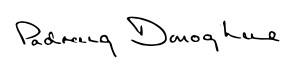 Padraig Donoghue